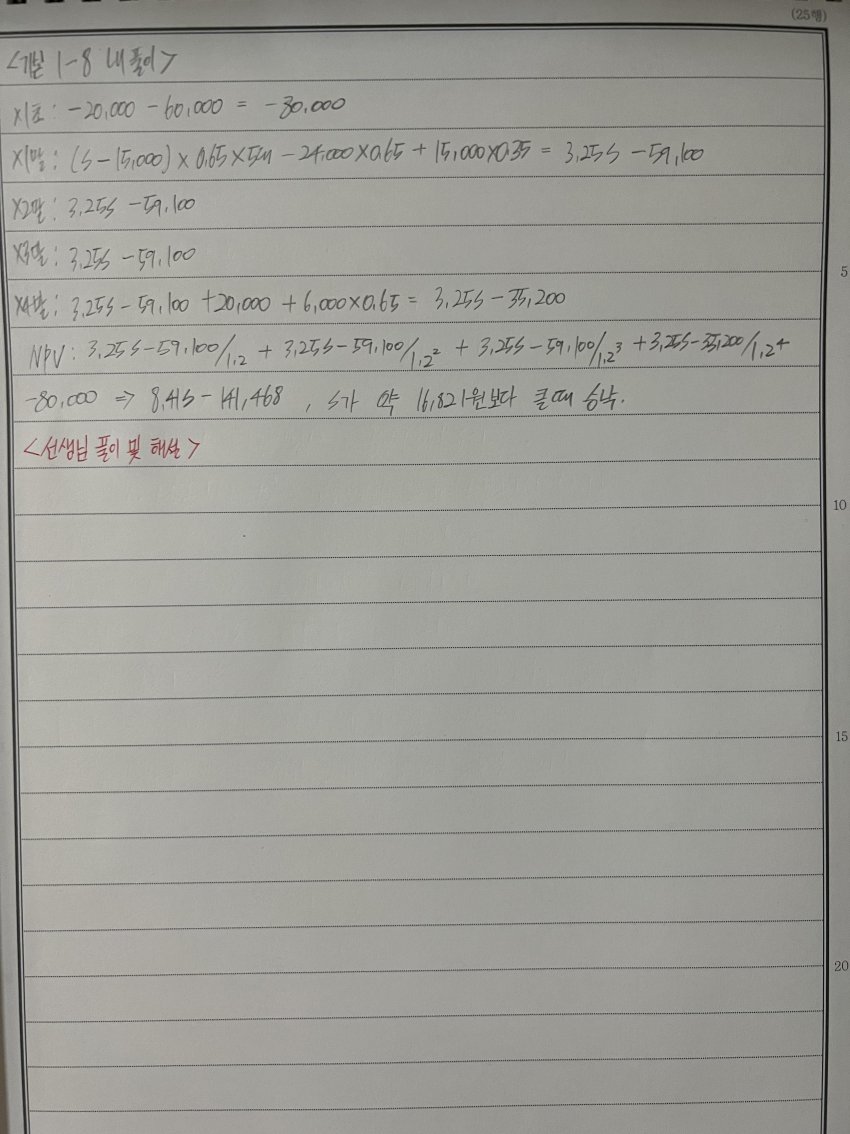 (25행)
<기본 1-8 내 풀이>
X1초 : -20,000 - 60,000 = -80,000
X1말 : (S - 15,000) × 0.65 × 5개 - 24,000 × 0.65 + 15,000 × 0.35 = 3.25S - 59,100
X2말 : 3.25S - 59,100
X3말 : 3.25S - 59,100
X4말 : 3.25S - 59,100 + 20,000 + 6,000 × 0.65 = 3.25S - 35,200
NPV : 3.25S - 59,100/1.2 + 3.25S - 59,100/1.2² + 3.25S - 59,100/1.2³ + 3.25S - 35,200/1.2⁴
-80,000 ⇒ 8.41S - 141,468 , S가 약 16,821원보다 클 때 승낙.
<선생님 풀이 및 해설>
5
10
15
20